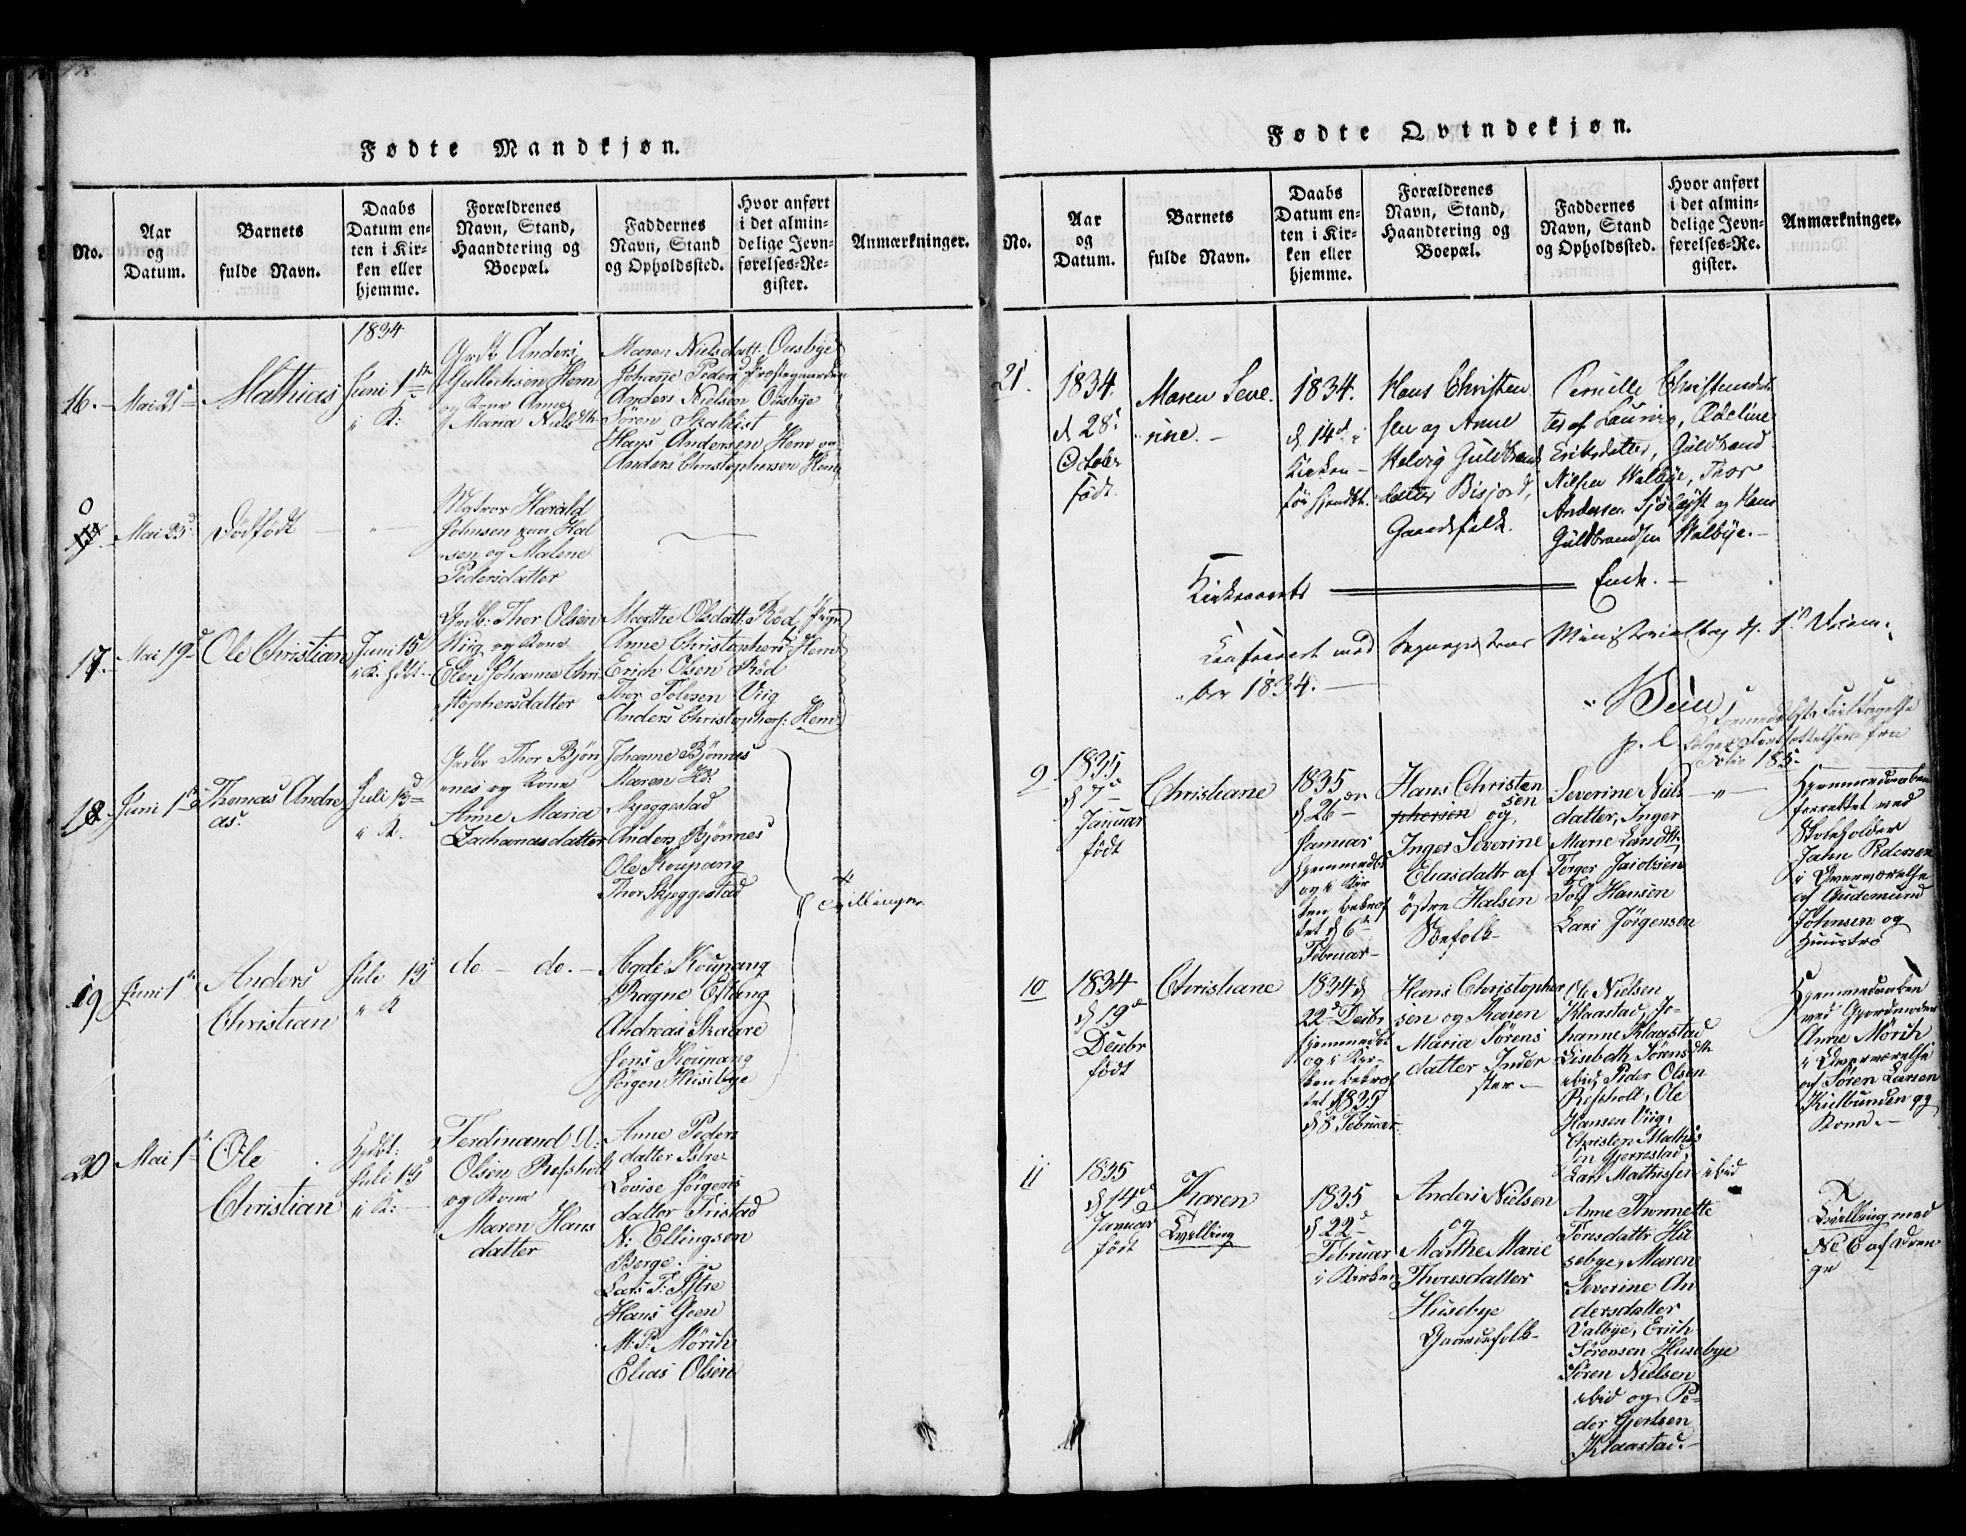 Fødte Mandkjøn.
No.
Aar
og
Datum.
Barnets
fulde Navn.
Daabs
Datum en-
ten i Kir-
ken eller
hjemme.
Forældrenes
Navn, Stand,
Haandtering og
Boepæl.
Faddernes
Navn, Stand
og Opholdssted.
Hvor anført
i det almin-
delige Jevn-
førelses-Re-
gister.
Anmærkninger.
16.
Mai 21
Mathias
1834
Juni 1
i K:
Anders
Gullichsen Hem
og Kone Anne
Maria Niels dtr
Maren Nielsdatt: Ousbye
Johanne Peders Præstegaarden
Anders Nielsen Ousbye
Søren Skalist
Hans Andersen Hem og
Anders Christophersen Hem
0
Mai 25
Dødfødt
Harald
Johnsen Hal
sen og Malene
Pedersdatter
17.
Mai 19
Ole Christian
Juni 15
i K.
Thor Olsen
Wiig og Kone
Elen Johanne Chri
stophersdatter
Marthe Olsdatt: Rød
Anne Christophers Hem
Erich Olsen Rød
Thor Tolvsen Viig
Anders Christophers: Hem
18
Juni 1
Thomas Andre
as.
Juli 13
i K.
Thor Bjøn
nes og Kone
Anne Maria
Zachariasdatter
Johanne Bjønnes
Maren
Skjeggestad
Anders Bjønnes
Ole Koupang
Thor Skjeggestad
Tvillinger
19
Juni 1
Anders
Christian
Juli 13
i K
do - do. -
Agde Koupang
Ragne Eftang
Andreas Skaare
Jens Koupang
Jørgen Husebye
20
Mai 1
Ole
Christian
Hdbt:
Juli 13
i K:
Ferdinand A:
Olsen Refsholt
og Kone
Maren Hans
datter
Anne Peders
datter Istre
Lovise Jørgens
datter Tristad
N: Ellingsen
Berge.
Lars T: Istre
Hans Goen
M: P: Mørch
Elias Olsen
Fødte Qvindekjøn.
No.
Aar
og
Datum.
Barnets
fulde Navn.
Daabs
Datum en-
ten i Kir-
ken eller
hjemme.
Forældrenes
Navn, Stand,
Haandtering og
Boepæl.
Faddernes
Navn, Stand
og Opholdssted.
Hvor anført
i det almin-
delige Jevn-
førelses-Re-
gister.
Anmærkninger.
21.
1834.
d 28
October
født.
Maren Seve
rine. -
1834.
d 14 i
Kirken -
før hjemdbt.
Hans Christen
sen og Anne
Helvig Guldbrands
datter Bisjord,
Gaardfolk.
Pernille Christensdat
ter af Laurvig, Edeline
Eriksdatter, Guldbrand
Nilsen Walbye, Thor
Andersen Sjölyst og Hans
Guldbrandsen Walbye. -
Kirkeaarets Ende. -
Confereret med Sognepræstens Ministerialbog d. 1 Decem-
ber 1834. -
Bull
p. l.
Formedelst Feiltagelse
følger Fortsættelsen fra
Folio 185
9
1835
d 7
Januar
født
Christiane
1835
d 26
Januar
hjemmedbt
og i Kir
ken bekræf
tet d 6
Februar
Hans Christen
phersen sen og
Inger Severine
Eliasdattr af
östre Halsen
Søefolk
Severine Niels
datter, Inger
Marie Larsdtr
Torger Jacobsen
Tolf Hanson
Lars Jörgensen
Hjemmedaaben
forrettet ved
Skoleholder
Jahn Pedersen
i Overværelse
af Gudemund
Johnsen og
Huustro
10
1834
d 19
Decbr
født
Christiane
1834 d
22 Decbr
hjemmedbt
og i Kir-
ken bekræf
tet 1835
d 8 Februar
Hans Christopher
sen og Karen
Maria Sørens
datter Inder
ster -
Ole Nielsen
Klaastad, Jo-
hanne Klaastad
Lisebeth Sørensdtr
ibid, Peder Olsen
Refsholt, Ole
Hansen Viig,
Christen Mathis
en Gjerrestad,
Lars Mathissen ibid
Hjemmedaaben
ved Gjordmoder
Anne Mörch
i Overværelse
af Søren Larsen
Kielbunden og
Kone. -
11
1835
d 14
Januar
født
Karen
Tvilling
1835
d 22
Februar
i Kirken
Anders Nielsen
og
Marthe Marie
Thorsdatter
Husebye
Gaardfolk
Anne Thonnette
Torsdattr Hu
sebye, Maren
Severine An
dersdatter
Valbye, Erich
Sørensen Husebye
Søren Nielsen
ibid og Pe-
der Gjertsen
Klaastad. -
Tvilling med
No 6 af Dren
ge